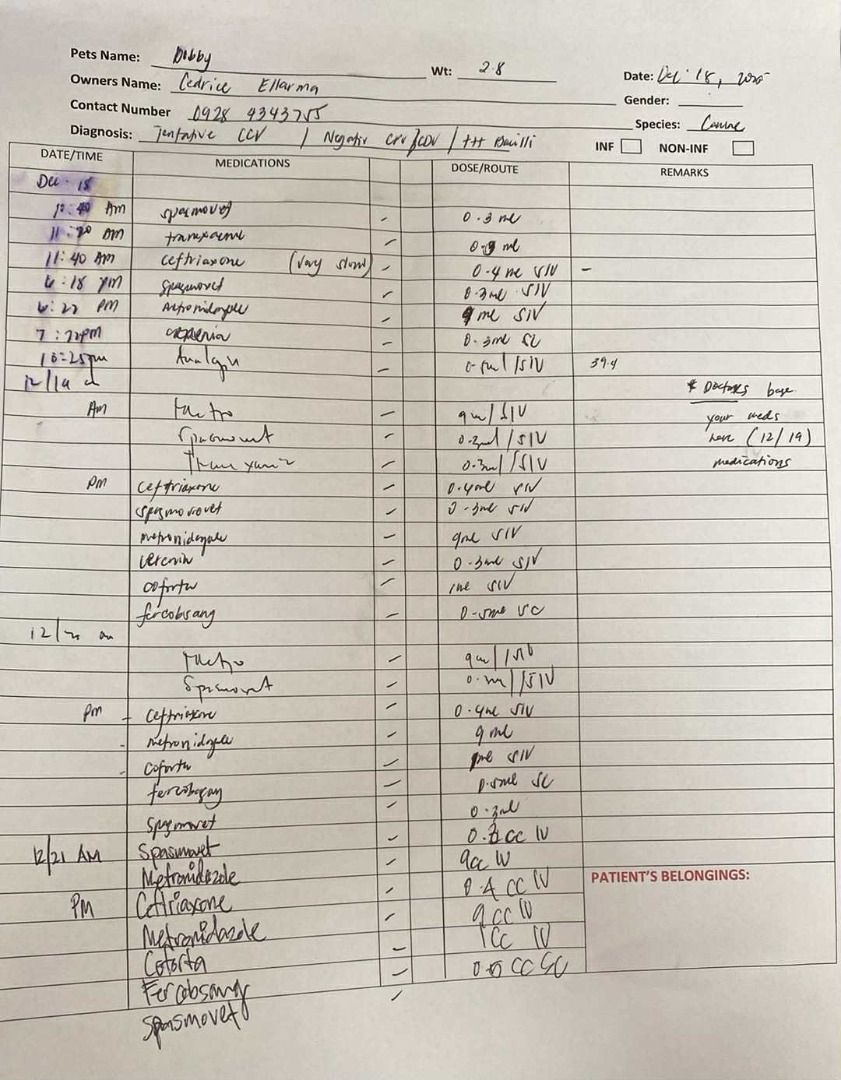 Pets Name: Dobby
Wt: 2.8
Date: Dec. 18, 2025
Owners Name: Cedrice Ellarma
Gender:
Contact Number 0928 4343755
Species: Canine
Diagnosis: Tentative CCV / Negativ CPV/CDV / ++ Bacilli
INF NON-INF
DATE/TIME MEDICATIONS DOSE/ROUTE REMARKS
Dec. 18
10:40 AM spasmovet - 0.3 ml
AM - ml
11:40 AM ceftriaxone (very slow) - 0.4 ml SIV -
6:18 pm spasmovet - 0.3ml SIV
6:22 PM metronidazole - 9 ml SIV
pm - 0.3ml SC
10:25pm Analgin - /SIV 39.4
12/19
* Doctors base
AM Metro - 9ml/SIV your meds
Spasmovet - /SIV here (12/19)
- 0.3ml/SIV medications
pm ceftriaxone - 0.4ml SIV
spasmovovet - 0.3ml SIV
metronidazole - 9ml SIV
- 0.3ml SIV
coforta - 1ml SIV
fercobsang - 0.5ml SC
12/20 am
Metro - /SIV
Spasmovet - /SIV
pm - ceftriaxone - 0.4ml SIV
- metronidazole - 9 ml
- coforta - 1ml SIV
fercobsang - 0.5ml SC
spasmovet - 0.3ml
12/21 AM Spasmovet - cc IV
Metronidazole 9cc IV
PATIENT'S BELONGINGS:
PM Ceftriaxone - 0.4 cc IV
Metronidazole 9cc IV
Coforta - 1cc IV
Fercobsang - 0.5 CC SC
Spasmovet -